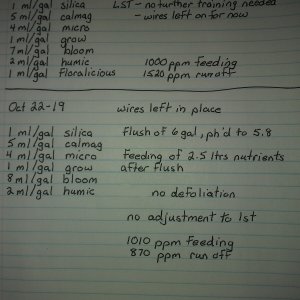 1 ml/gal silica LST - no further training needed
5 ml/gal calmag - wires left on for now
4 ml/gal micro
1 ml/gal grow
7 ml/gal bloom
2 ml/gal humic 1000 ppm feeding
1 ml/gal Floralicious 1520 ppm run off
Oct 22-19 wires left in place
1 ml/gal silica flush of 6 gal, ph'd to 5.8
5 ml/gal calmag
4 ml/gal micro feeding of 2.5 ltrs nutrients
1 ml/gal grow after flush
8 ml/gal bloom
2 ml/gal humic no defoliation
no adjustment to lst
1010 ppm feeding
870 ppm run off